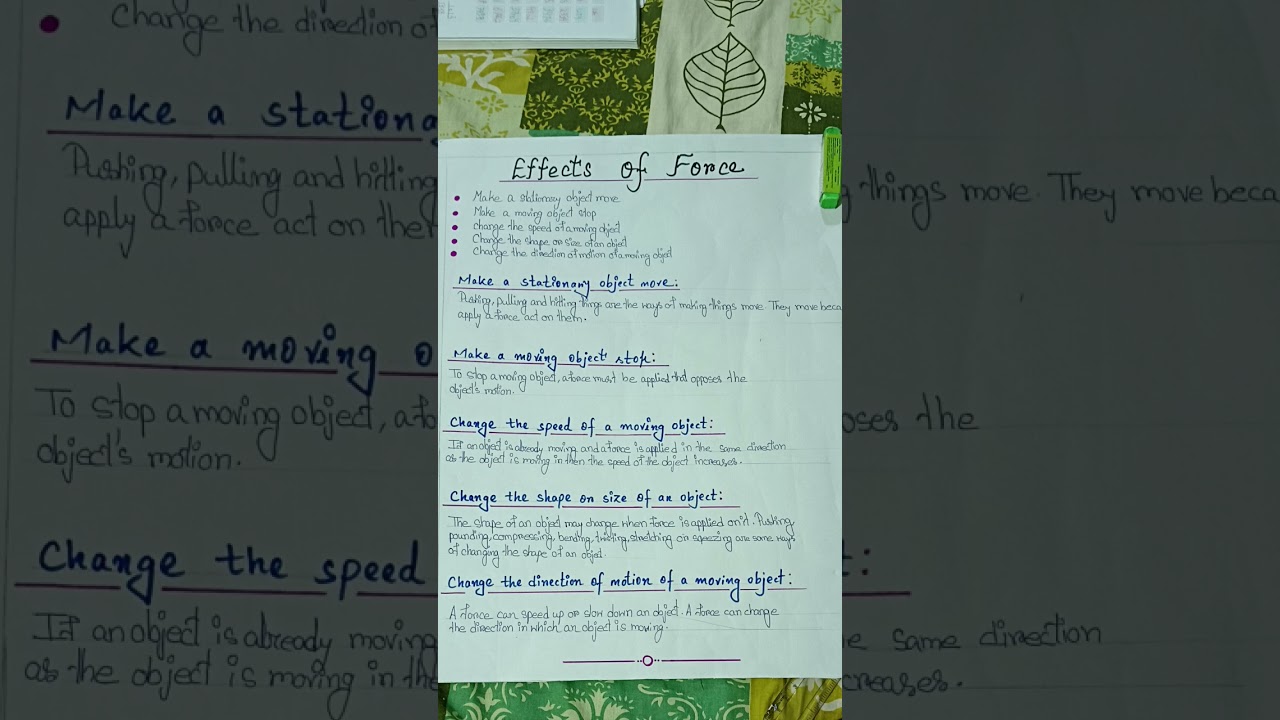 Effects of Force
Make a stationary object move
Make a moving object stop
change the speed of a moving object
Change the shape or size of an object
Change the direction of motion of a moving object
Make a stationary object move:
Pushing, pulling and hitting things are the ways of making things move. They move beca
apply a force act on them.
Make a moving object stop:
To stop a moving object, a force must be applied that opposes the
object's motion.
Change the speed of a moving object:
If an object is already moving and a force is applied in the same direction
as the object is moving in then the speed of the object increases.
Change the shape or size of an object:
The shape of an object may change when force is applied on it. Pushing
pounding, compressing, bending, twisting, stretching or squeezing are some ways
of changing the shape of an object.
Change the direction of motion of a moving object:
A force can speed up or slow down an object. A force can change
the direction in which an object is moving.